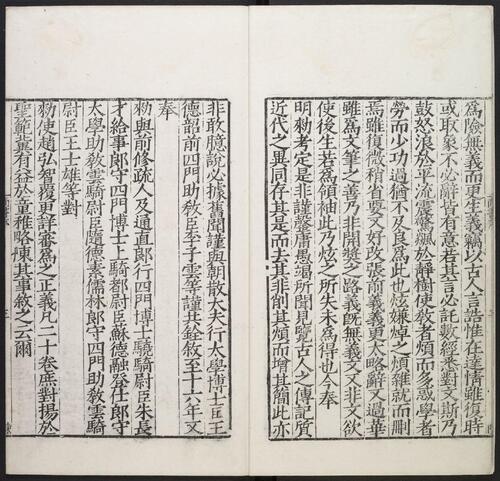 爲險無義而更生義竊以古人言誥惟在達情雖復時
或取象不必辭皆有意若其言必託數經悉對文斯乃
鼓怒浪於平流震驚飇於靜樹使敎者煩而多惑學者
勞而少功過猶不及良爲此也炫嫌焯之煩雜就而刪
焉雖復微稍省要又好改張前義義更太略辭又過華
雖爲文筆之善乃非開奬之路義旣無義文又非文欲
使後生若爲領袖此乃炫之所失未爲得也今奉
明勑考定是非謹罄庸愚竭所聞見覽古人之傳記質
近代之異同存其是而去其非削其煩而增其簡此亦
非敢臆說必據舊聞謹與朝散大夫行太學博士臣王
德韶前四門助敎臣李子雲等謹共銓敘至十六年又
奉
勑與前修疏人及通直郎行四門博士驍騎尉臣朱長
才給事郎守四門博士上騎都尉臣蘇德融登仕郎守
太學助敎雲騎尉臣隨德素儒林郎守四門助敎雲騎
尉臣王士雄等對
勑使趙弘智覆更詳審爲之正義凡二十卷庶對揚於
聖範冀有益於童稚略陳其事敘之云爾